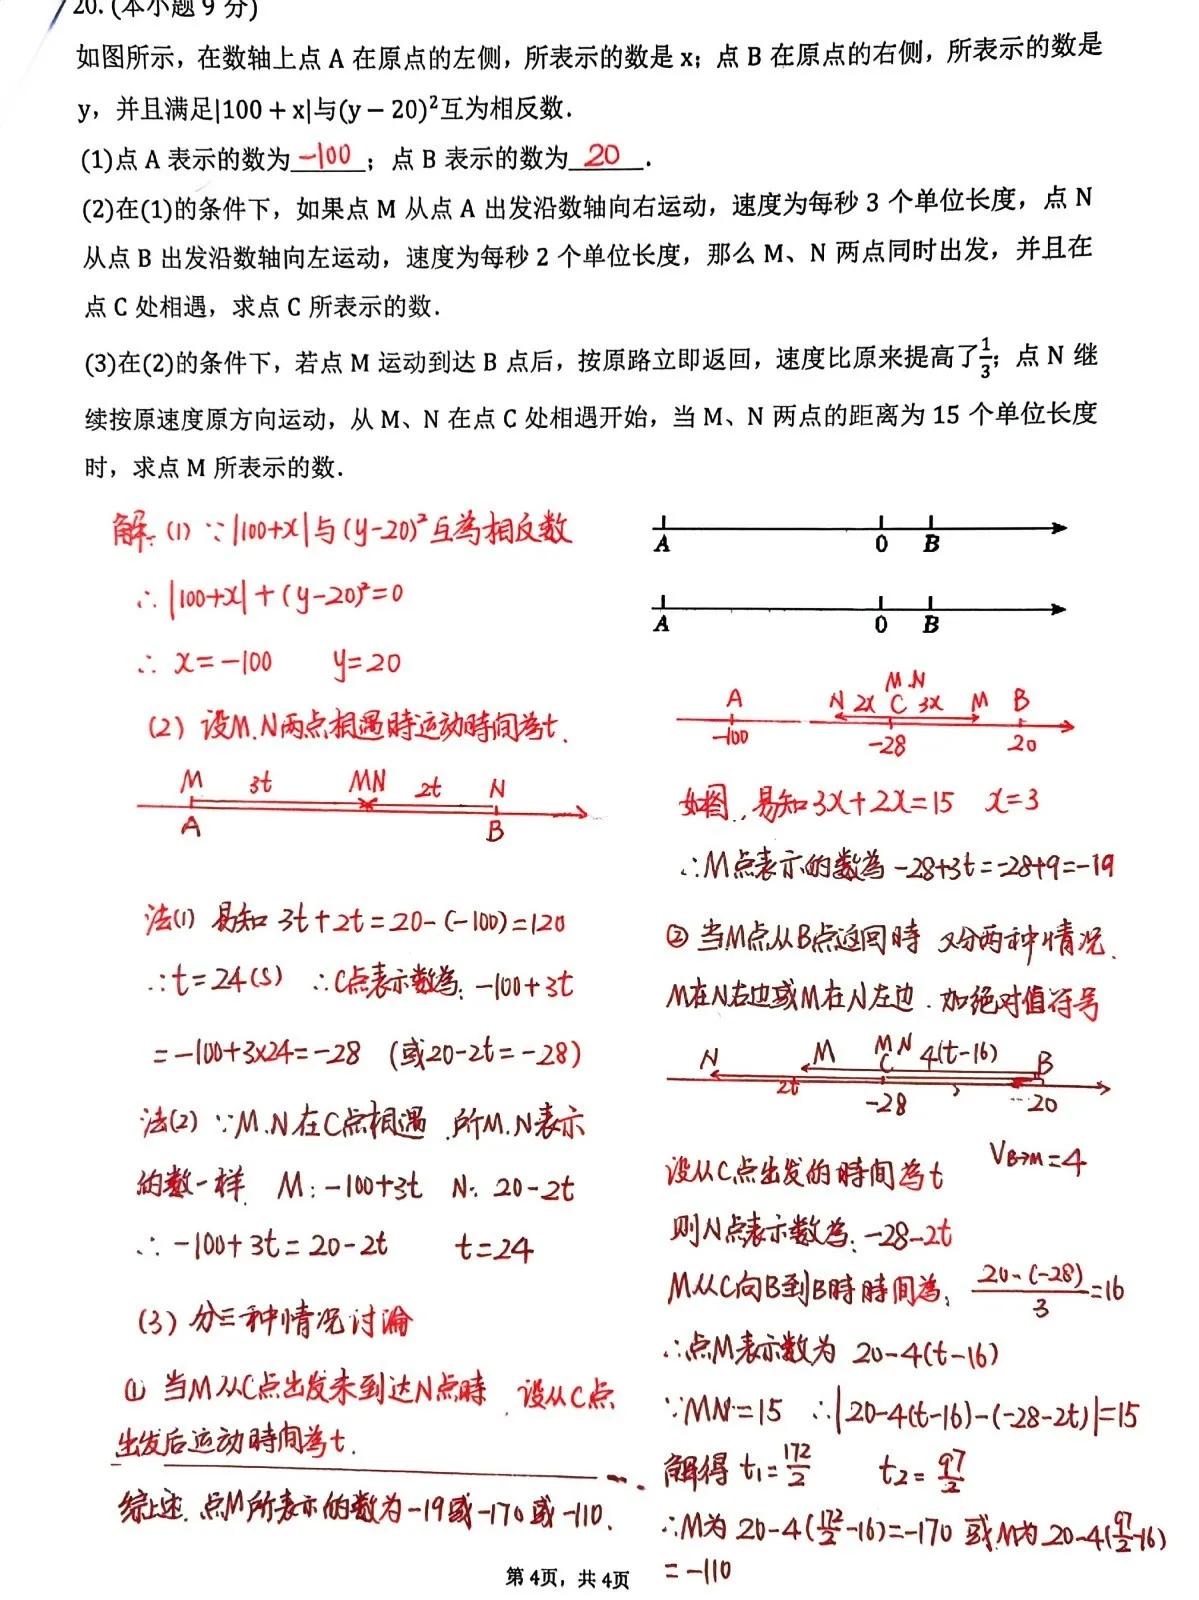 20. (本小题 9 分)
如图所示，在数轴上点 A 在原点的左侧，所表示的数是 x；点 B 在原点的右侧，所表示的数是
y，并且满足|100 + x|与(y − 20)²互为相反数.
(1)点 A 表示的数为 -100 ；点 B 表示的数为 20 .
(2)在(1)的条件下，如果点 M 从点 A 出发沿数轴向右运动，速度为每秒 3 个单位长度，点 N
从点 B 出发沿数轴向左运动，速度为每秒 2 个单位长度，那么 M、N 两点同时出发，并且在
点 C 处相遇，求点 C 所表示的数.
(3)在(2)的条件下，若点 M 运动到达 B 点后，按原路立即返回，速度比原来提高了1/3；点 N 继
续按原速度原方向运动，从 M、N 在点 C 处相遇开始，当 M、N 两点的距离为 15 个单位长度
时，求点 M 所表示的数.
解: (1) ∵|100+x|与(y-20)²互為相反数
∴|100+x|+(y-20)²=0
∴ x=-100 y=20
(2) 设M.N两点相遇時运动時间為t.
M 3t MN 2t N
A B
法(1) 易知 3t+2t=20-(-100)=120
∴t=24(s) ∴C点表示数為: -100+3t
=-100+3×24=-28 (或20-2t=-28)
法(2) ∵M.N在C点相遇.所M.N表示
的数一样 M:-100+3t N: 20-2t
∴-100+3t=20-2t t=24
(3) 分三种情况讨論
① 当M从C点出发未到达N点時. 设从C点
出发后运动時间為t.
综上述.点M所表示的数为-19或-170或-110.
A 0 B
A 0 B
M.N
A N 2x C 3x M B
-100 -28 20
如图.易知3x+2x=15 x=3
∴M点表示的数為-28+3t=-28+9=-19
② 当M点从B点返回時 又分两种情况.
M在N右边或M在N左边.加绝对值符号
N M MN 4(t-16) B
C
2t -28 20
设从C点出发的時间為t V_{B→M}=4
则N点表示数為:-28-2t
M从C向B到B時時间為: \frac{20-(-28)}{3}=16
∴点M表示数为 20-4(t-16)
∵MN=15 ∴|20-4(t-16)-(-28-2t)|=15
解得 t₁=\frac{172}{2} t₂=\frac{97}{2}
∴M为 20-4(\frac{172}{2}-16)=-170 或M为 20-4(\frac{97}{2}-16)
=-110
第 4页，共 4页